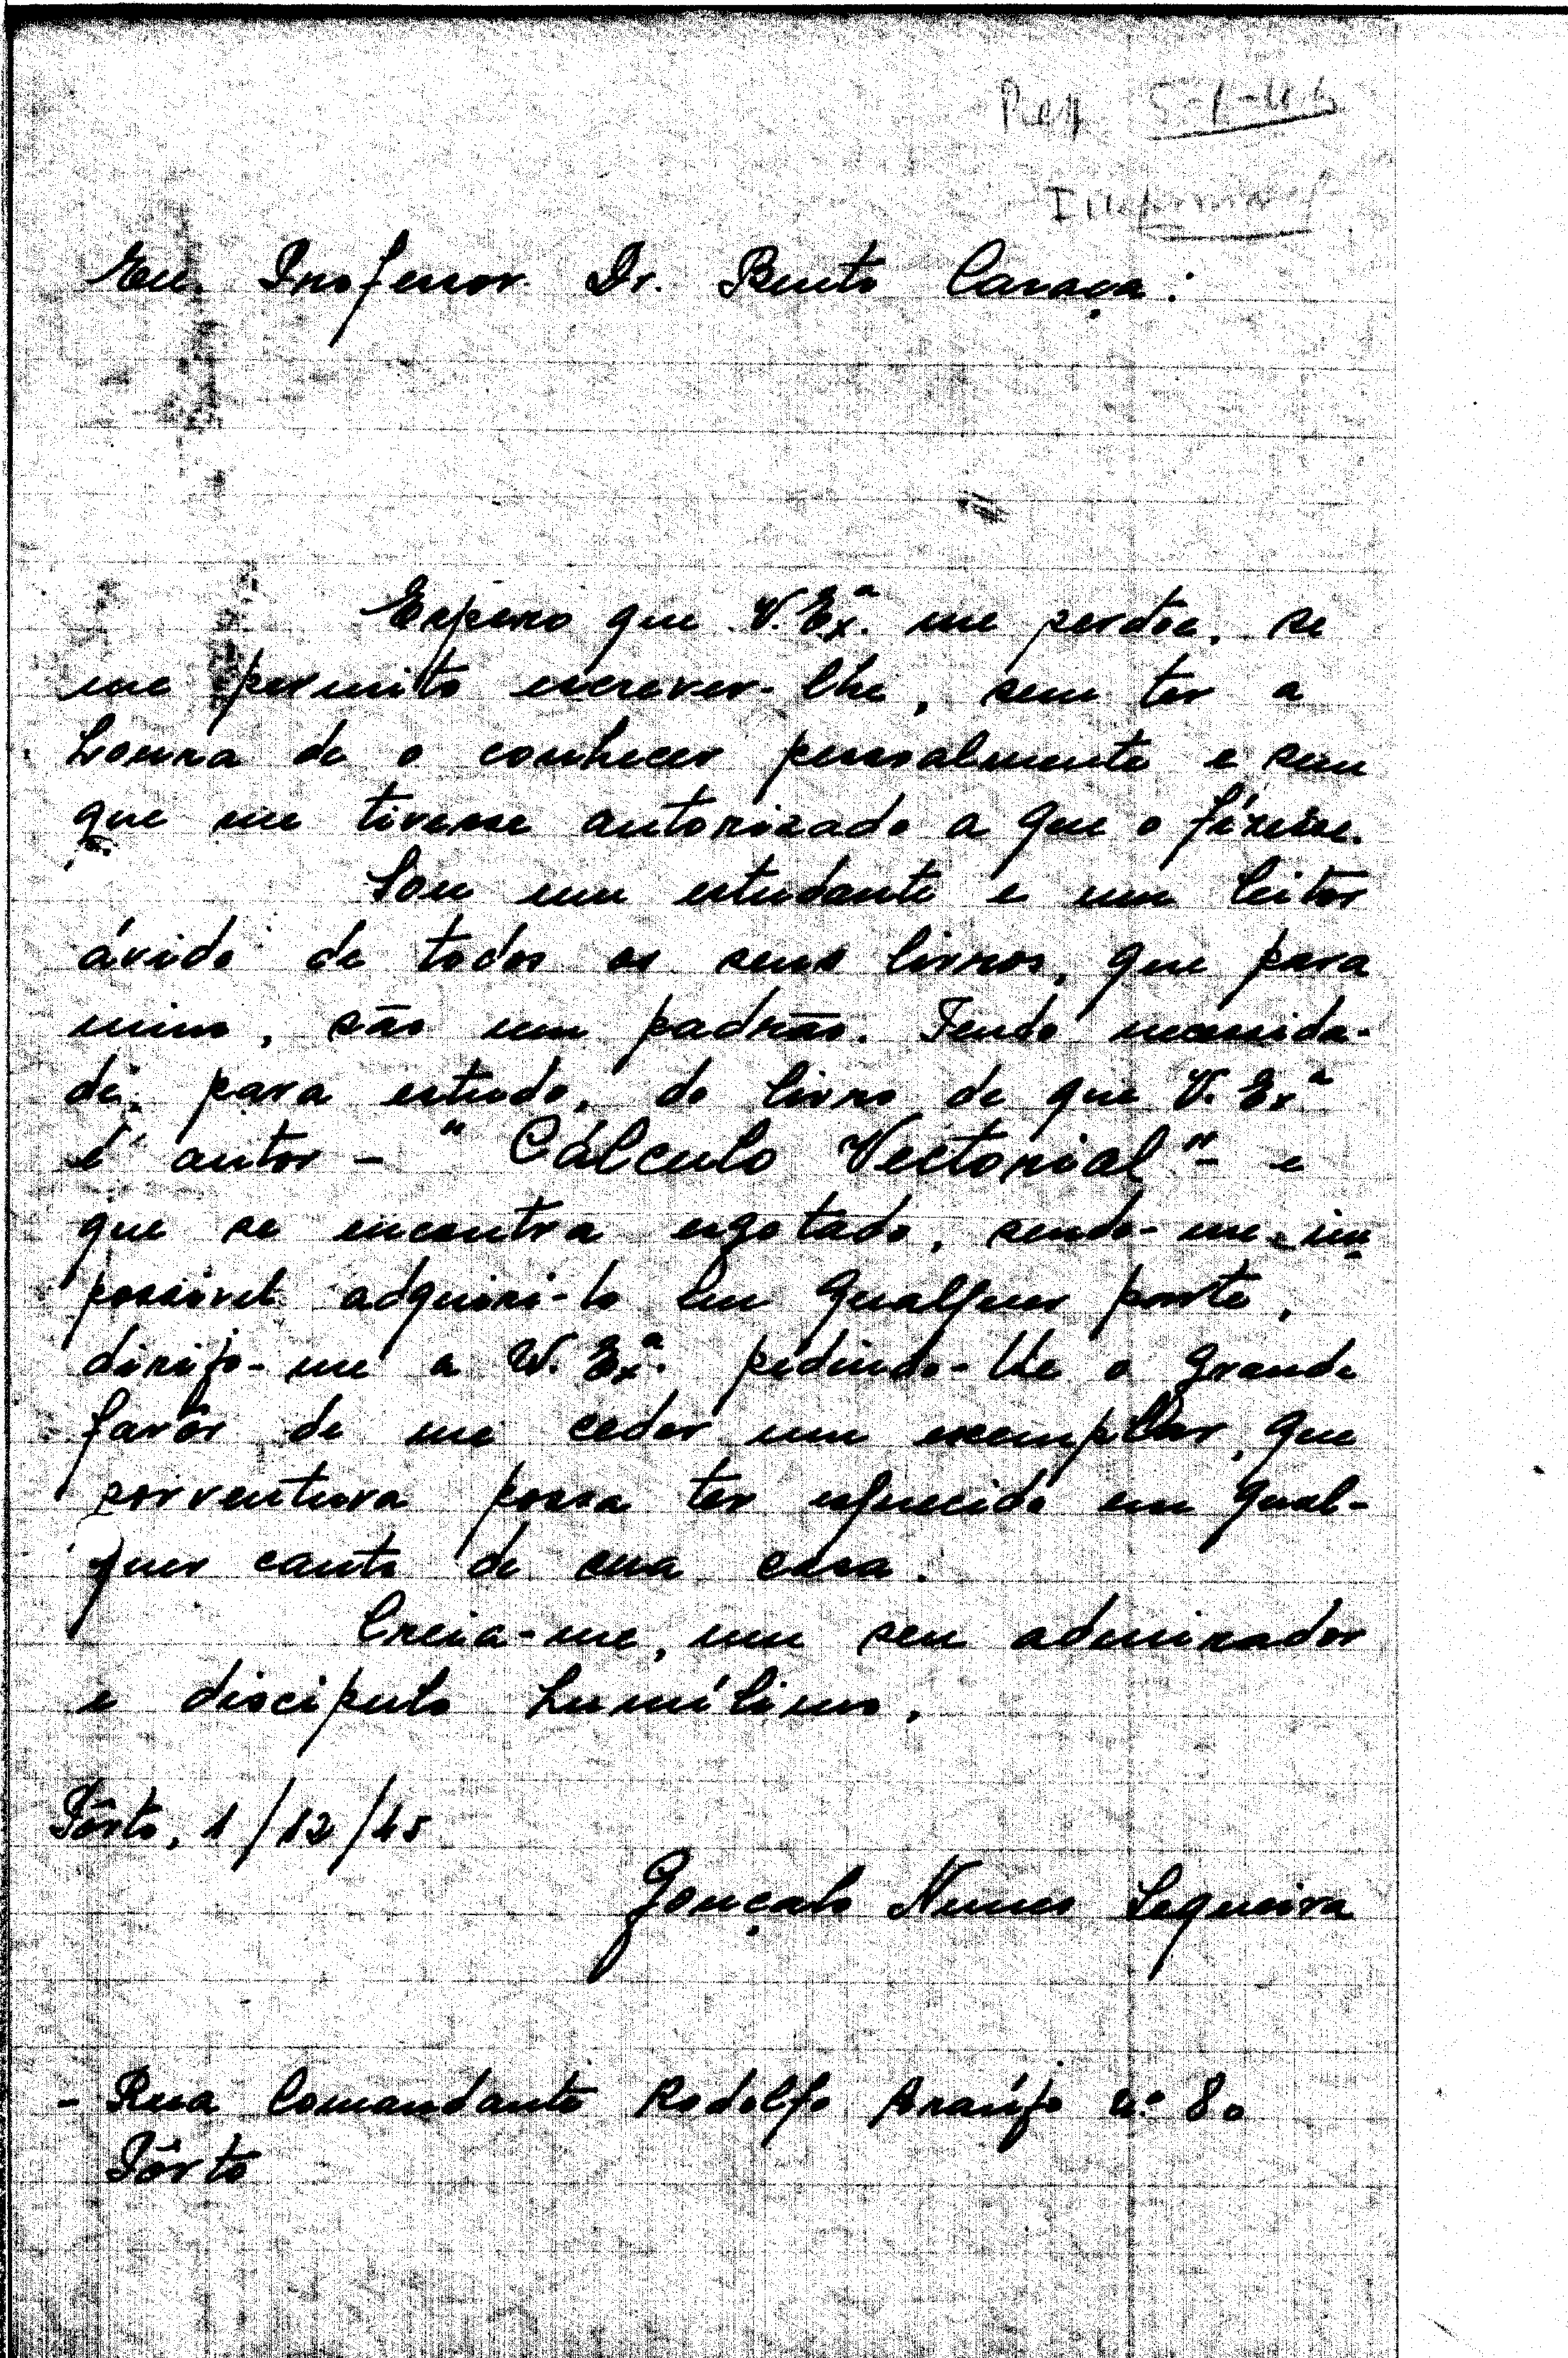 Exm. Professor Dr. Bento Caraça:
Espero que V. Ex.ª me perdôe, se
me permito escrever-lhe, sem ter a
honra de o conhecer pessoalmente e sem
que me tivesse autorizado a que o fizesse.
Sou um estudante e um leitor
ávido de todos os seus livros, que para
mim, são um padrão. Tendo necessida-
de, para estudo, do livro de que V. Ex.ª
é autor - "Cálculo Vectorial" - e
que se encontra esgotado, sendo-me im
possivel adquiri-lo em qualquer parte,
dirijo-me a V. Ex.ª pedindo-lhe o grande
favôr de me ceder um exemplar, que
porventura possa ter esquecido em qual-
quer canto de sua casa.
Creia-me, um seu admirador
e discipulo humílimo,
Pôrto, 1/12/45
Gonçalo Nunes Sequeira
- Rua Comandante Rodolfo Araújo n.º 80
Pôrto